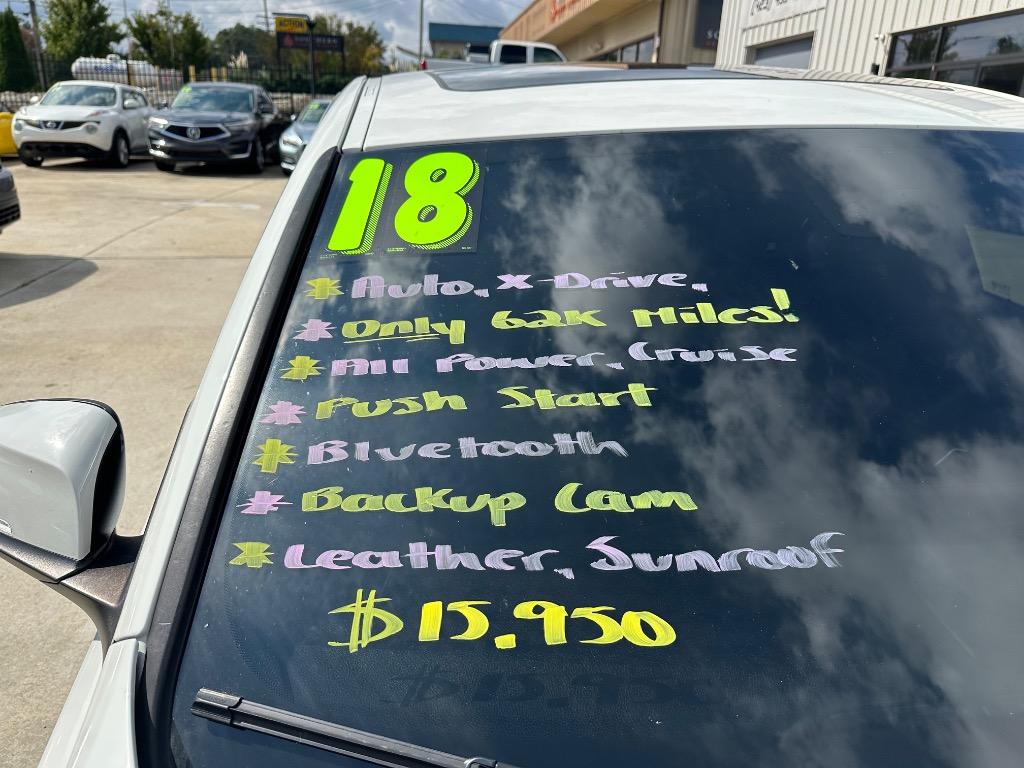 18
* Auto, X-Drive,
* Only 62K Miles!
* All Power, Cruise
* Push Start
* Bluetooth
* Backup Cam
* Leather, Sunroof
$15,950